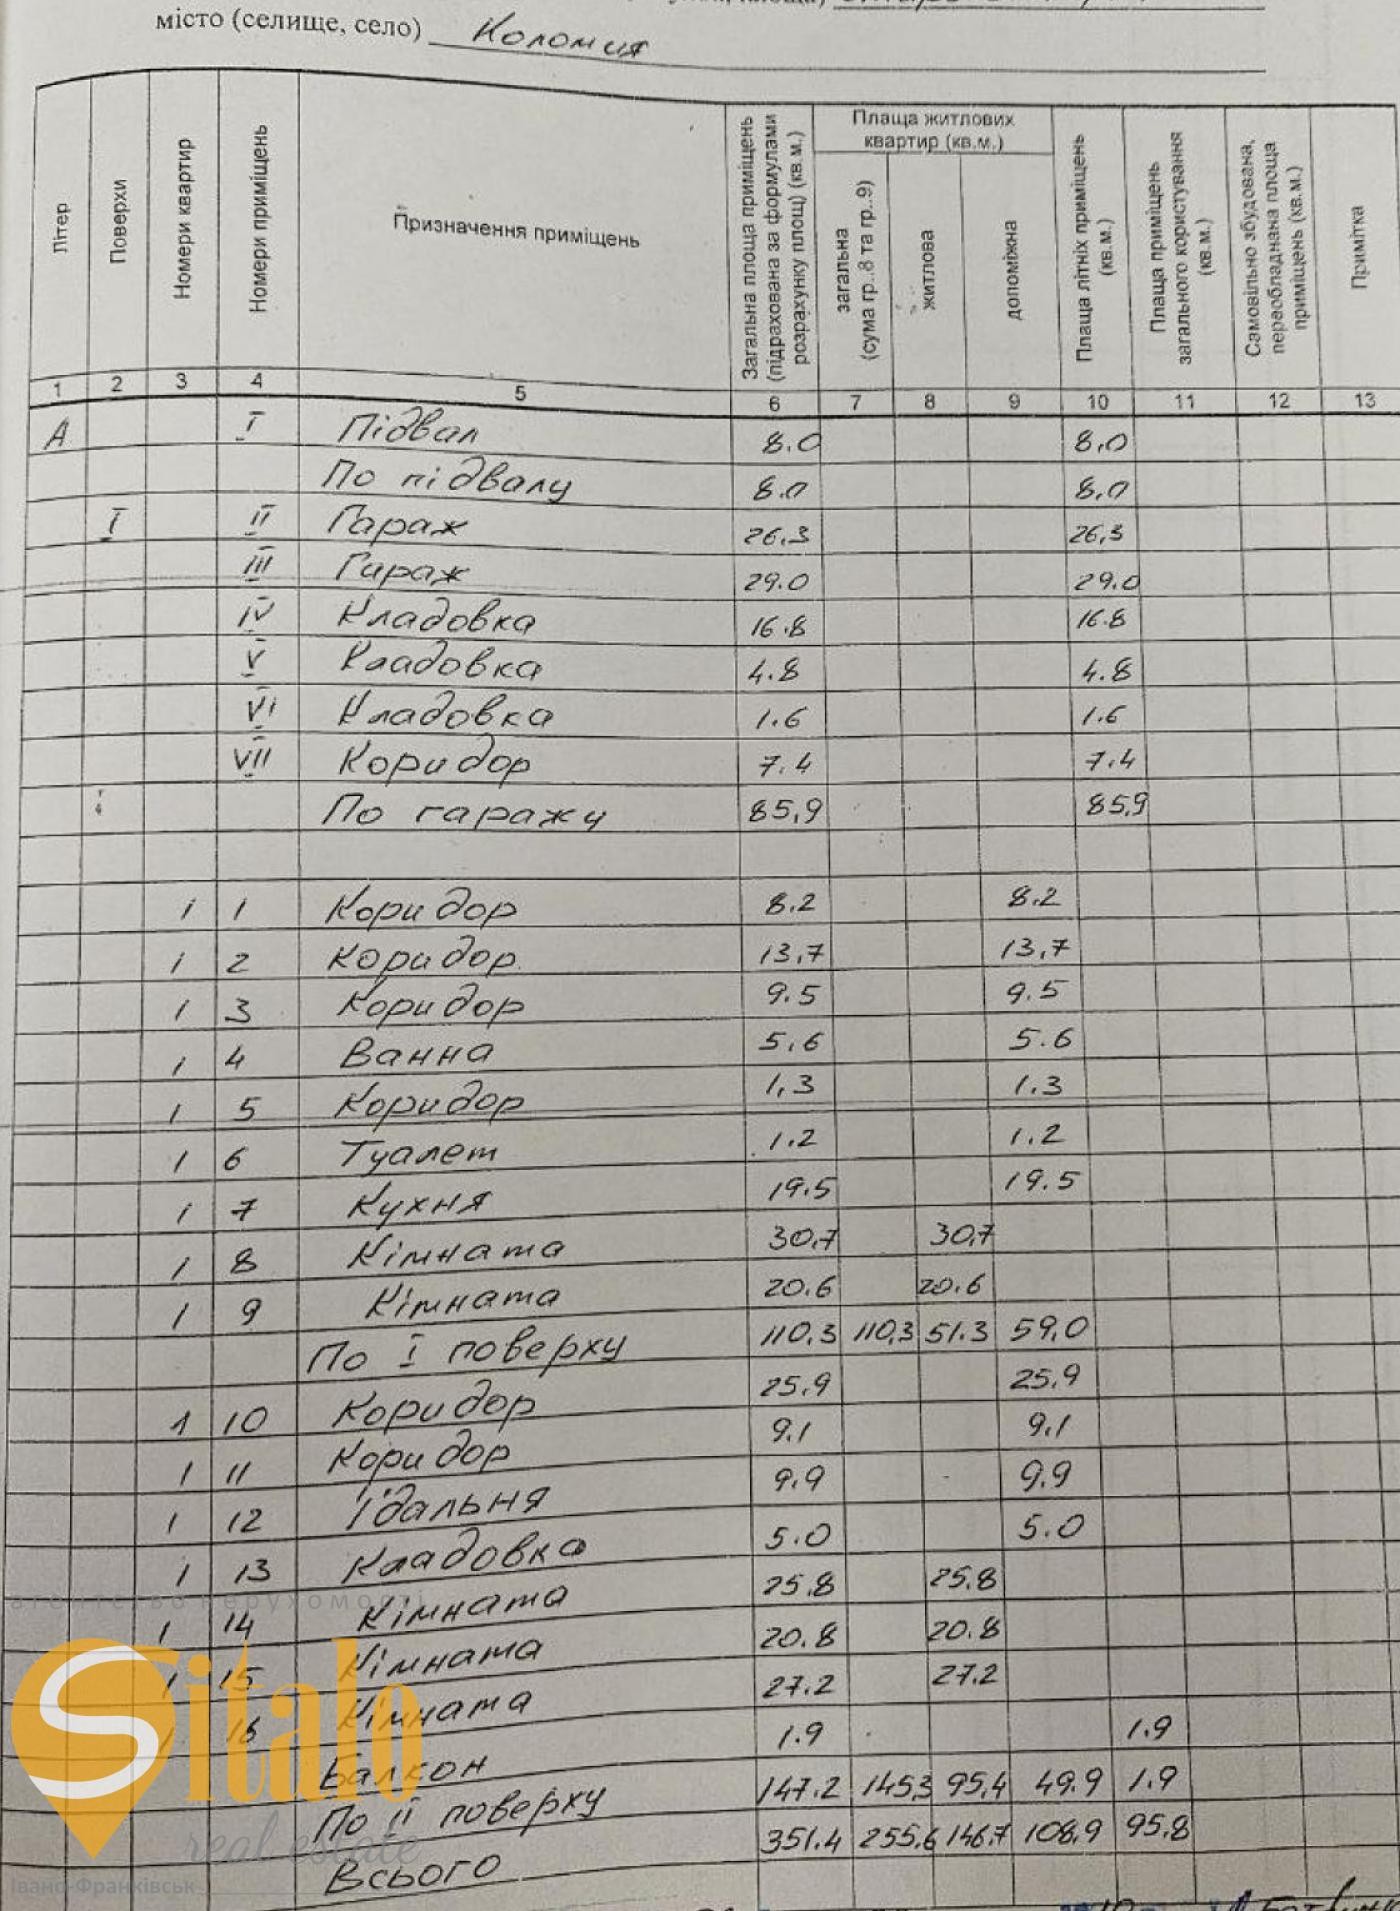 місто (селище, село) Коломия
Літер Поверхи Номери квартир Номери приміщень Призначення приміщень Загальна площа приміщень (підрахована за формулами розрахунку площ) (кв.м.) Плаща житлових квартир (кв.м.) загальна (сума гр..8 та гр..9) житлова допоміжна Плаща літніх приміщень (кв.м.) Плаща приміщень загального користування (кв.м.) Самовільно збудована, переобладнана площа приміщень (кв.м.) Примітка
1 2 3 4 5 6 7 8 9 10 11 12 13
А I Підвал 8.0 8,0
По підвалу 8.0 8,0
I II Гараж 26,3 26,3
III Гараж 29.0 29.0
IV Кладовка 16.8 16.8
V Кладовка 4.8 4.8
VI Кладовка 1.6 1.6
VII Коридор 7.4 7.4
По гаражу 85,9 85,9
1 1 Коридор 8.2 8.2
1 2 Коридор 13,7 13,7
1 3 Коридор 9.5 9.5
1 4 Ванна 5,6 5.6
1 5 Коридор 1,3 1.3
1 6 Туалет 1.2 1.2
1 7 Кухня 19.5 19.5
1 8 Кімната 30,7 30,7
1 9 Кімната 20.6 20.6
По I поверху 110.3 110,3 51.3 59,0
1 10 Коридор 25,9 25,9
1 11 Коридор 9.1 9,1
1 12 Їдальня 9.9 9.9
1 13 Кладовка 5.0 5.0
1 14 Кімната 25.8 25.8
1 15 Кімната 20.8 20.8
1 16 Кімната 27.2 27.2
Балкон 1.9 1.9
По II поверху 147.2 145,3 95,4 49.9 1.9
Всього 351.4 255.6 146,7 108,9 95,8
агентство нерухомості
Sitalo
real estate
Івано-Франківськ